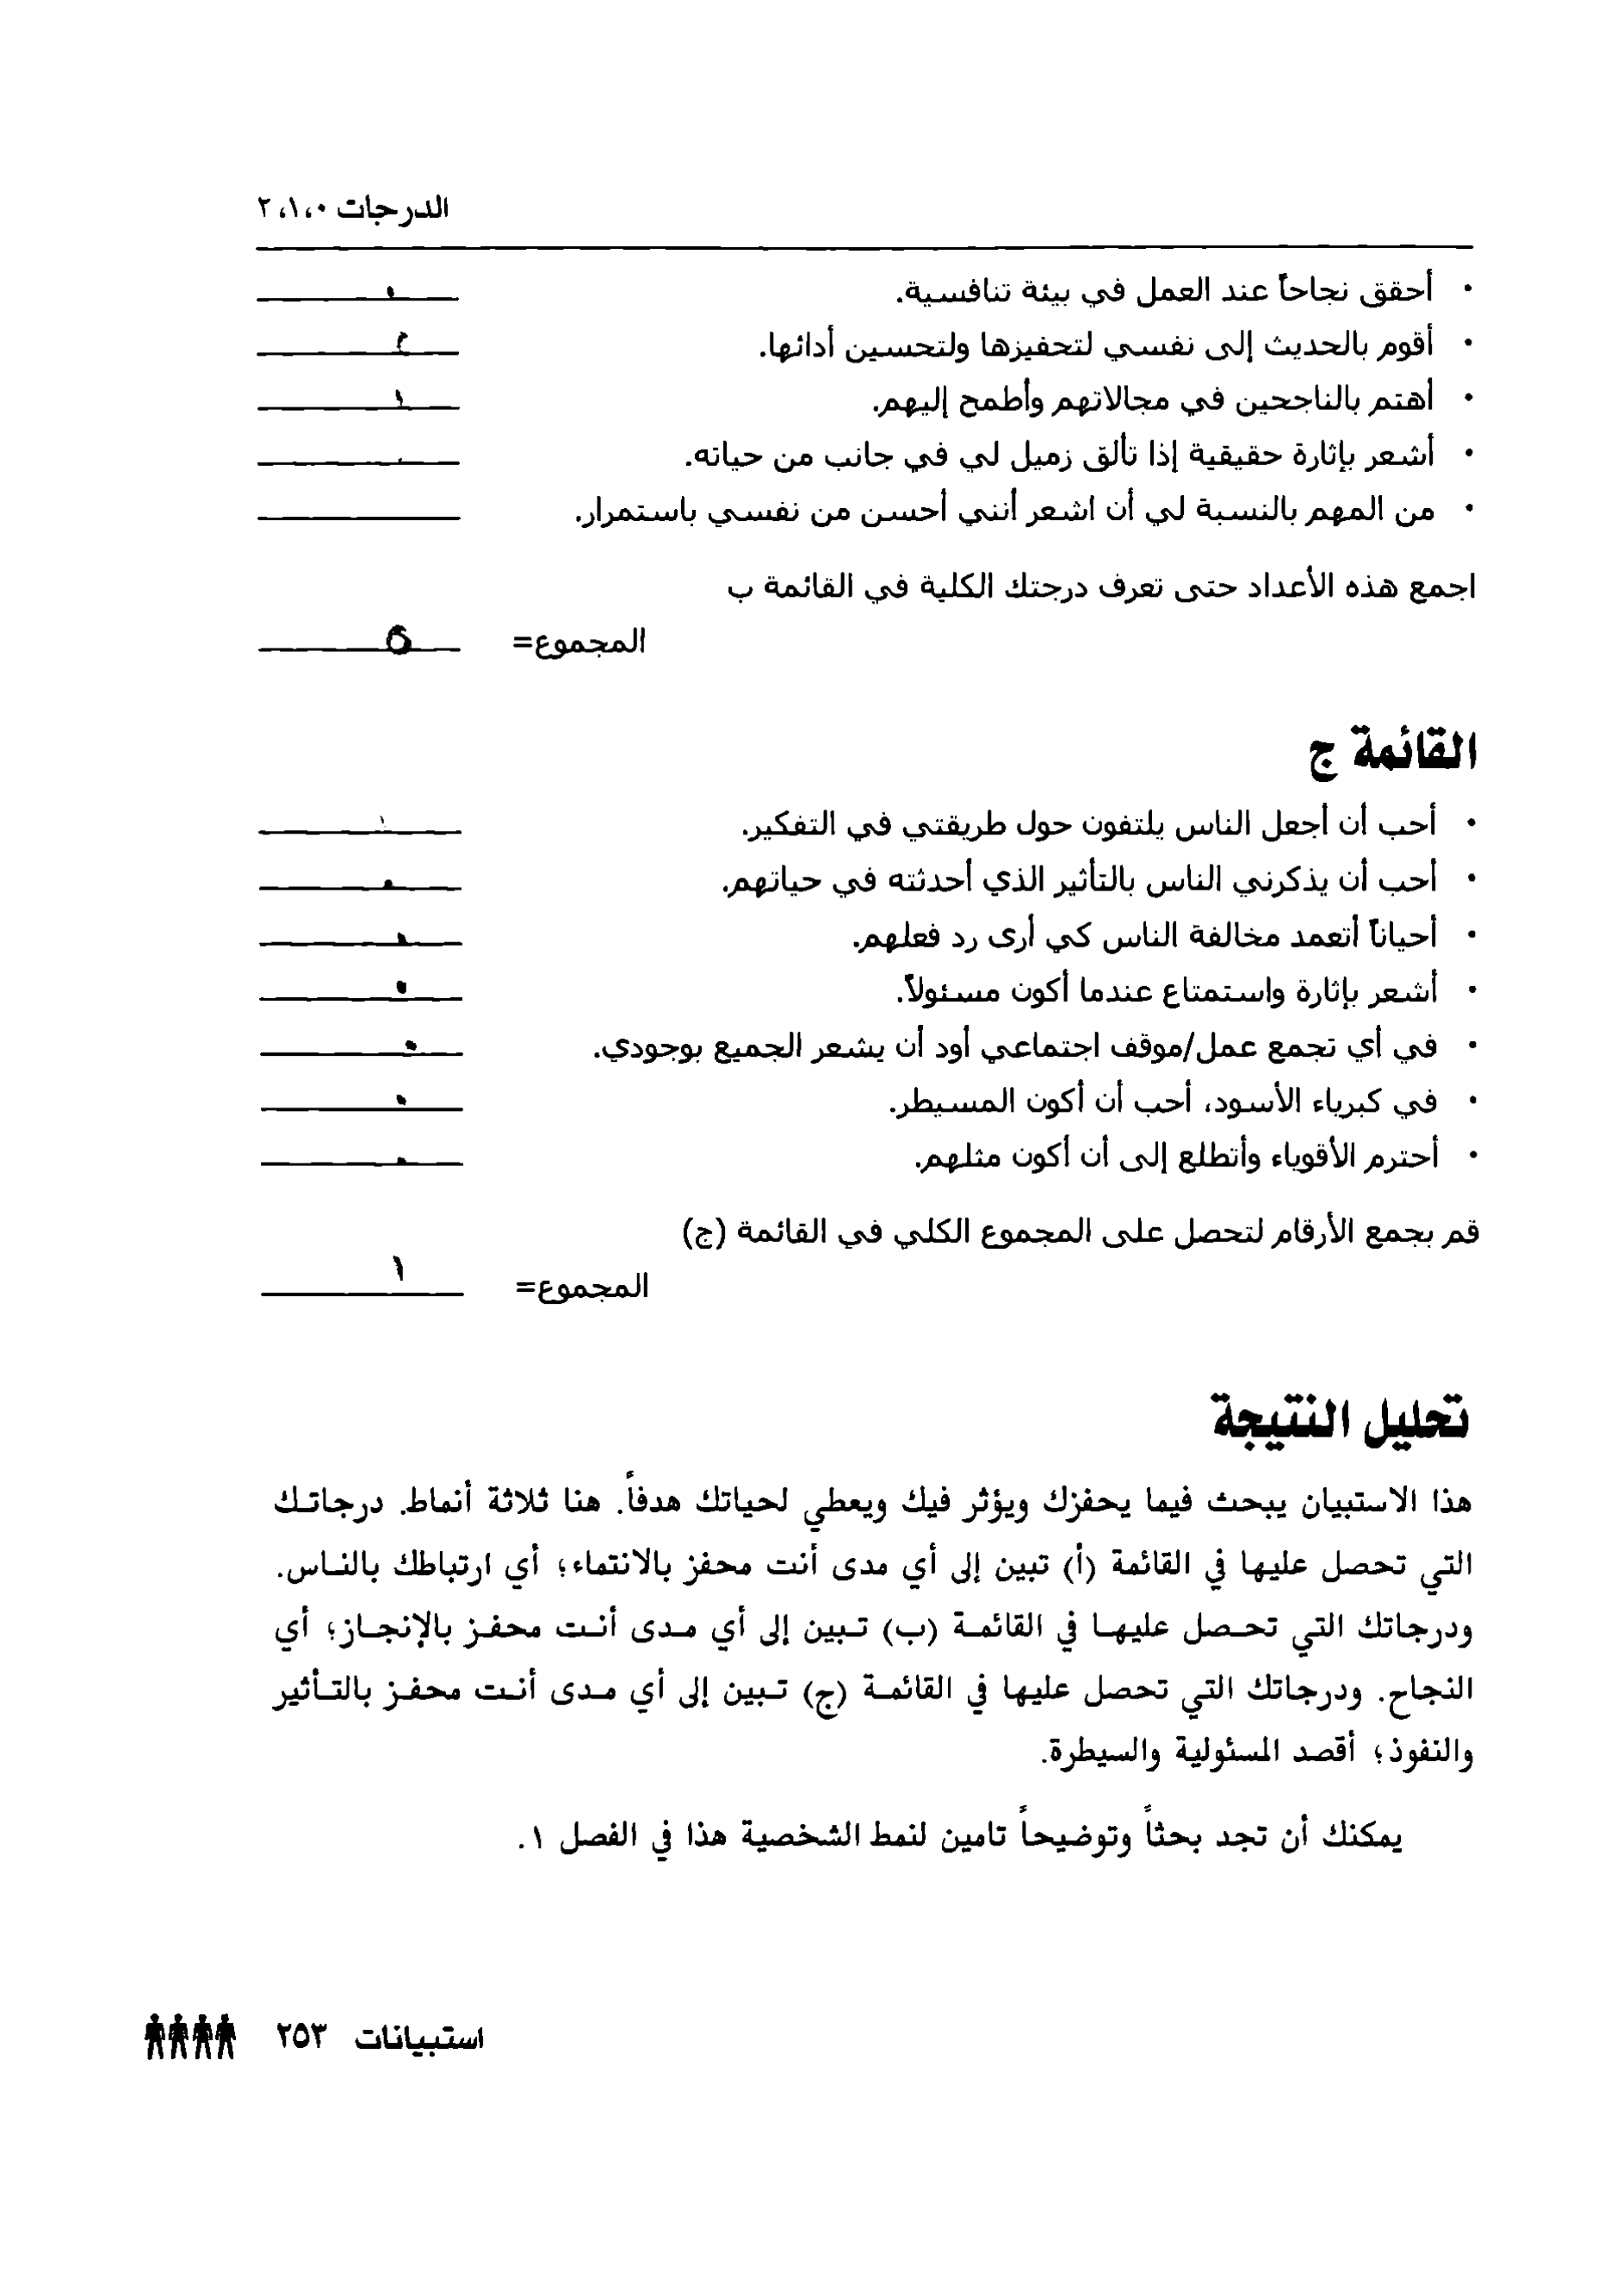 الدرجات ٠، ١، ٢
• أحقق نجاحاً عند العمل في بيئة تنافسية. ٠
• أقوم بالحديث إلى نفسي لتحفيزها ولتحسين أدائها. ٢
• أهتم بالناجحين في مجالاتهم وأطمح إليهم. ١
• أشعر بإثارة حقيقية إذا تألق زميل لي في جانب من حياته.
• من المهم بالنسبة لي أن اشعر أنني أحسن من نفسي باستمرار.
اجمع هذه الأعداد حتى تعرف درجتك الكلية في القائمة ب
المجموع= ٥
القائمة ج
• أحب أن أجعل الناس يلتفون حول طريقتي في التفكير. ١
• أحب أن يذكرني الناس بالتأثير الذي أحدثته في حياتهم. ٠
• أحياناً أتعمد مخالفة الناس كي أرى رد فعلهم. ٠
• أشعر بإثارة واستمتاع عندما أكون مسئولاً. ٠
• في أي تجمع عمل/موقف اجتماعي أود أن يشعر الجميع بوجودي. ٠
• في كبرياء الأسود، أحب أن أكون المسيطر. ٠
• أحترم الأقوياء وأتطلع إلى أن أكون مثلهم. ٠
قم بجمع الأرقام لتحصل على المجموع الكلي في القائمة (ج)
المجموع= ١
تحليل النتيجة
هذا الاستبيان يبحث فيما يحفزك ويؤثر فيك ويعطي لحياتك هدفاً. هنا ثلاثة أنماط. درجاتك
التي تحصل عليها في القائمة (أ) تبين إلى أي مدى أنت محفز بالانتماء؛ أي ارتباطك بالناس.
ودرجاتك التي تحصل عليها في القائمة (ب) تبين إلى أي مدى أنت محفز بالإنجاز؛ أي
النجاح. ودرجاتك التي تحصل عليها في القائمة (ج) تبين إلى أي مدى أنت محفز بالتأثير
والنفوذ؛ أقصد المسئولية والسيطرة.
يمكنك أن تجد بحثاً وتوضيحاً تامين لنمط الشخصية هذا في الفصل ١.
استبيانات ٢٥٣